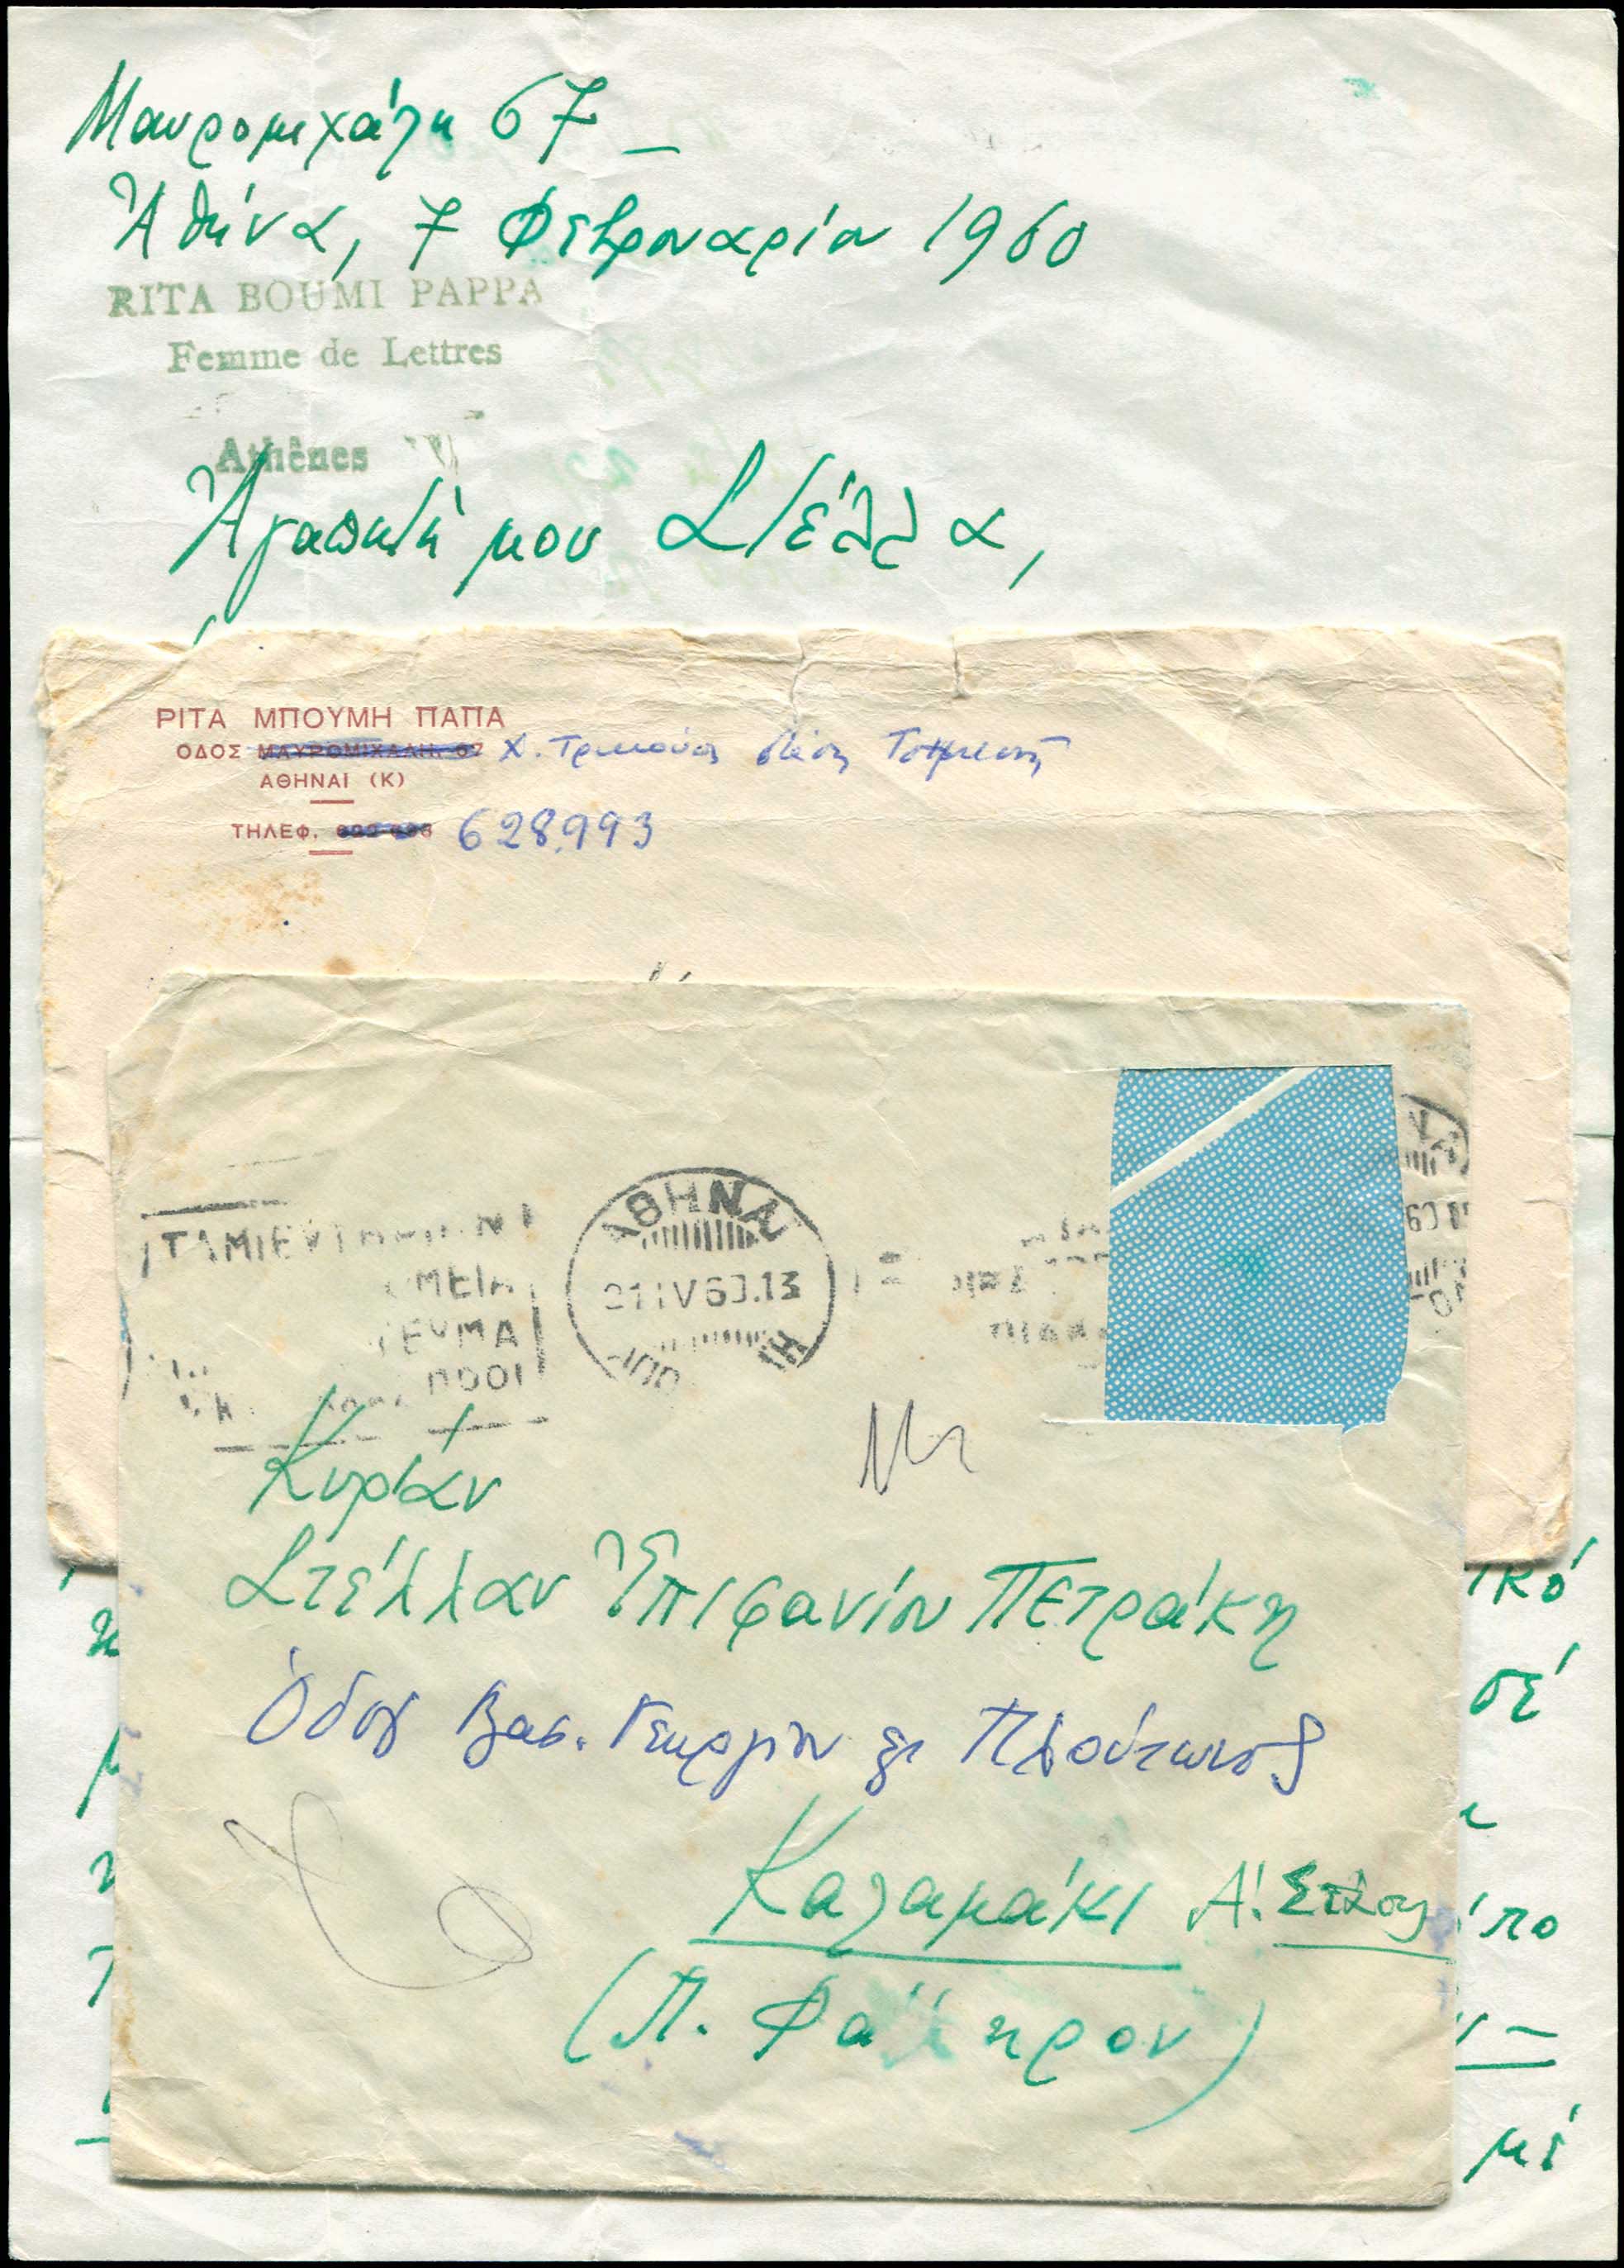 Μαυρομιχάλη 67 –
Ἀθήνα, 7 Φεβρουαρίου 1960
RITA BOUMI PAPPA
Femme de Lettres
Athênes
Ἀγαπητή μου Στέλλα,
ΡΙΤΑ ΜΠΟΥΜΗ ΠΑΠΑ
ΟΔΟΣ ΜΑΥΡΟΜΙΧΑΛΗ. 67 Χ. Τρικούπη στάση
ΑΘΗΝΑΙ (Κ)
ΤΗΛΕΦ. 628.993
ΑΘΗΝΑΙ
21 IV 60.13
ΜΕΙΑ
ΕΥΜΑ
Κυρίαν
Στέλλαν Ἐπιφανίου Πετράκη
Ὁδός Βασ. Γεωργίου & Πλούτωνος
Καλαμάκι Α! Στάσις
(Π. Φάληρον)
ικό
σέ
πο
μέ